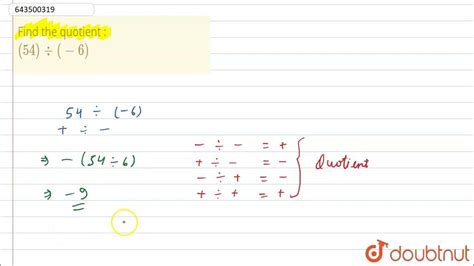 643500319
Find the quotient :
(54) ÷ (− 6)
54 ÷ (-6)
+ ÷ -
⇒ - (54÷6)
⇒ - 9
- ÷ - = +
+ ÷ - = -
- ÷ + = -
+ ÷ + = +
Quotient
doubtnut